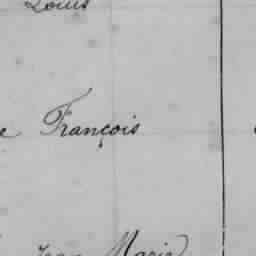 Louis
e François
Jean Marie